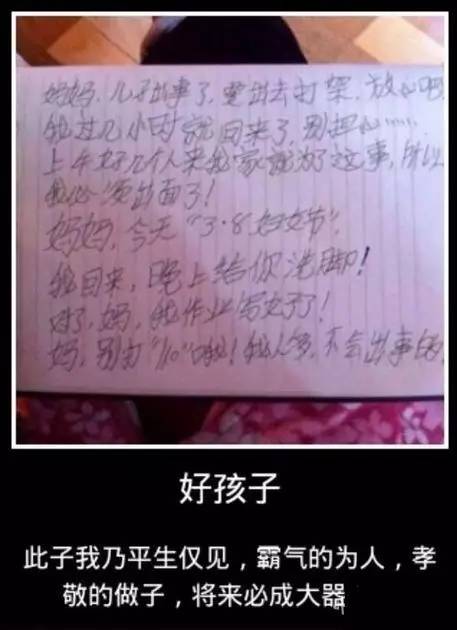 妈妈，儿子出事了，要出去打架，放心吧
我过几小时就回来了，别担心……
上午好几个人来我家就为了这事，所以
我必须出面了！
妈妈，今天“3·8妇女节”，
我回来，晚上给你洗脚！
对了，妈，我作业写好了！
妈，别打“110”哦！我人多，不会出事的，
好孩子
此子我乃平生仅见，霸气的为人，孝
敬的做子，将来必成大器